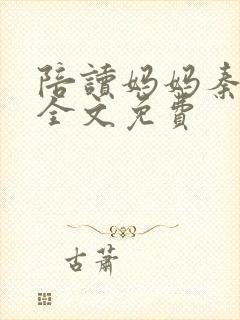 陪讀媽媽秦
全文免費
古蕭